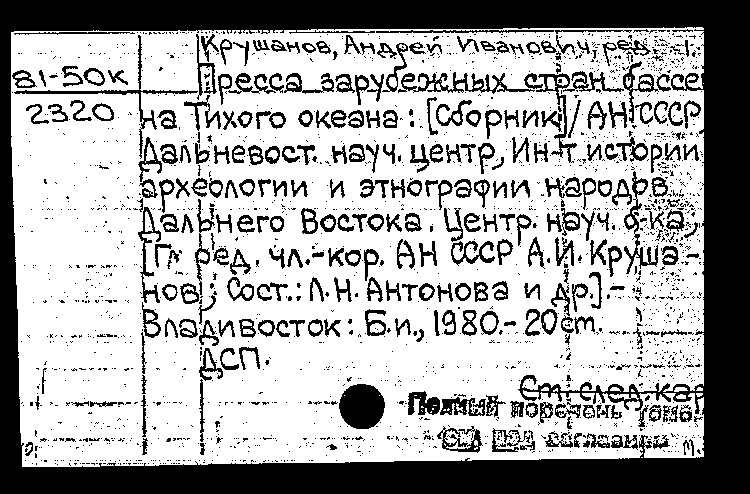 Крушанов, Андрей Иванович, ред.
81-50к
Пресса зарубежных стран бассей
2320
на Тихого океана : [Сборник] / АН СССР,
Дальневост. науч. центр, Ин-т истории
археологии и этнографии народов
Дальнего Востока. Центр. науч. б-ка;
[Гл. ред. чл.-кор. АН СССР А.И. Круша-
нов; Сост.: Л.Н. Антонова и др.].-
Владивосток : Б.и., 1980.- 20 см.
ДСП.
См. след. кар
Полный перечень томов
под заглавием